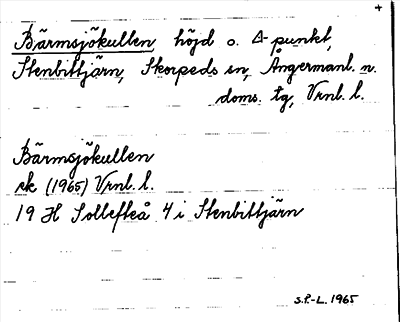 +
Bärmsjökullen höjd o. Δ-punkt,
Stenbittjärn, Skorpeds sn, Ångermanl. n.
doms. tg, Vrnl. l.
Bärmsjökullen
ek (1965) Vrnl. l.
19 H Sollefteå 4 i Stenbittjärn
S.P.-L. 1965